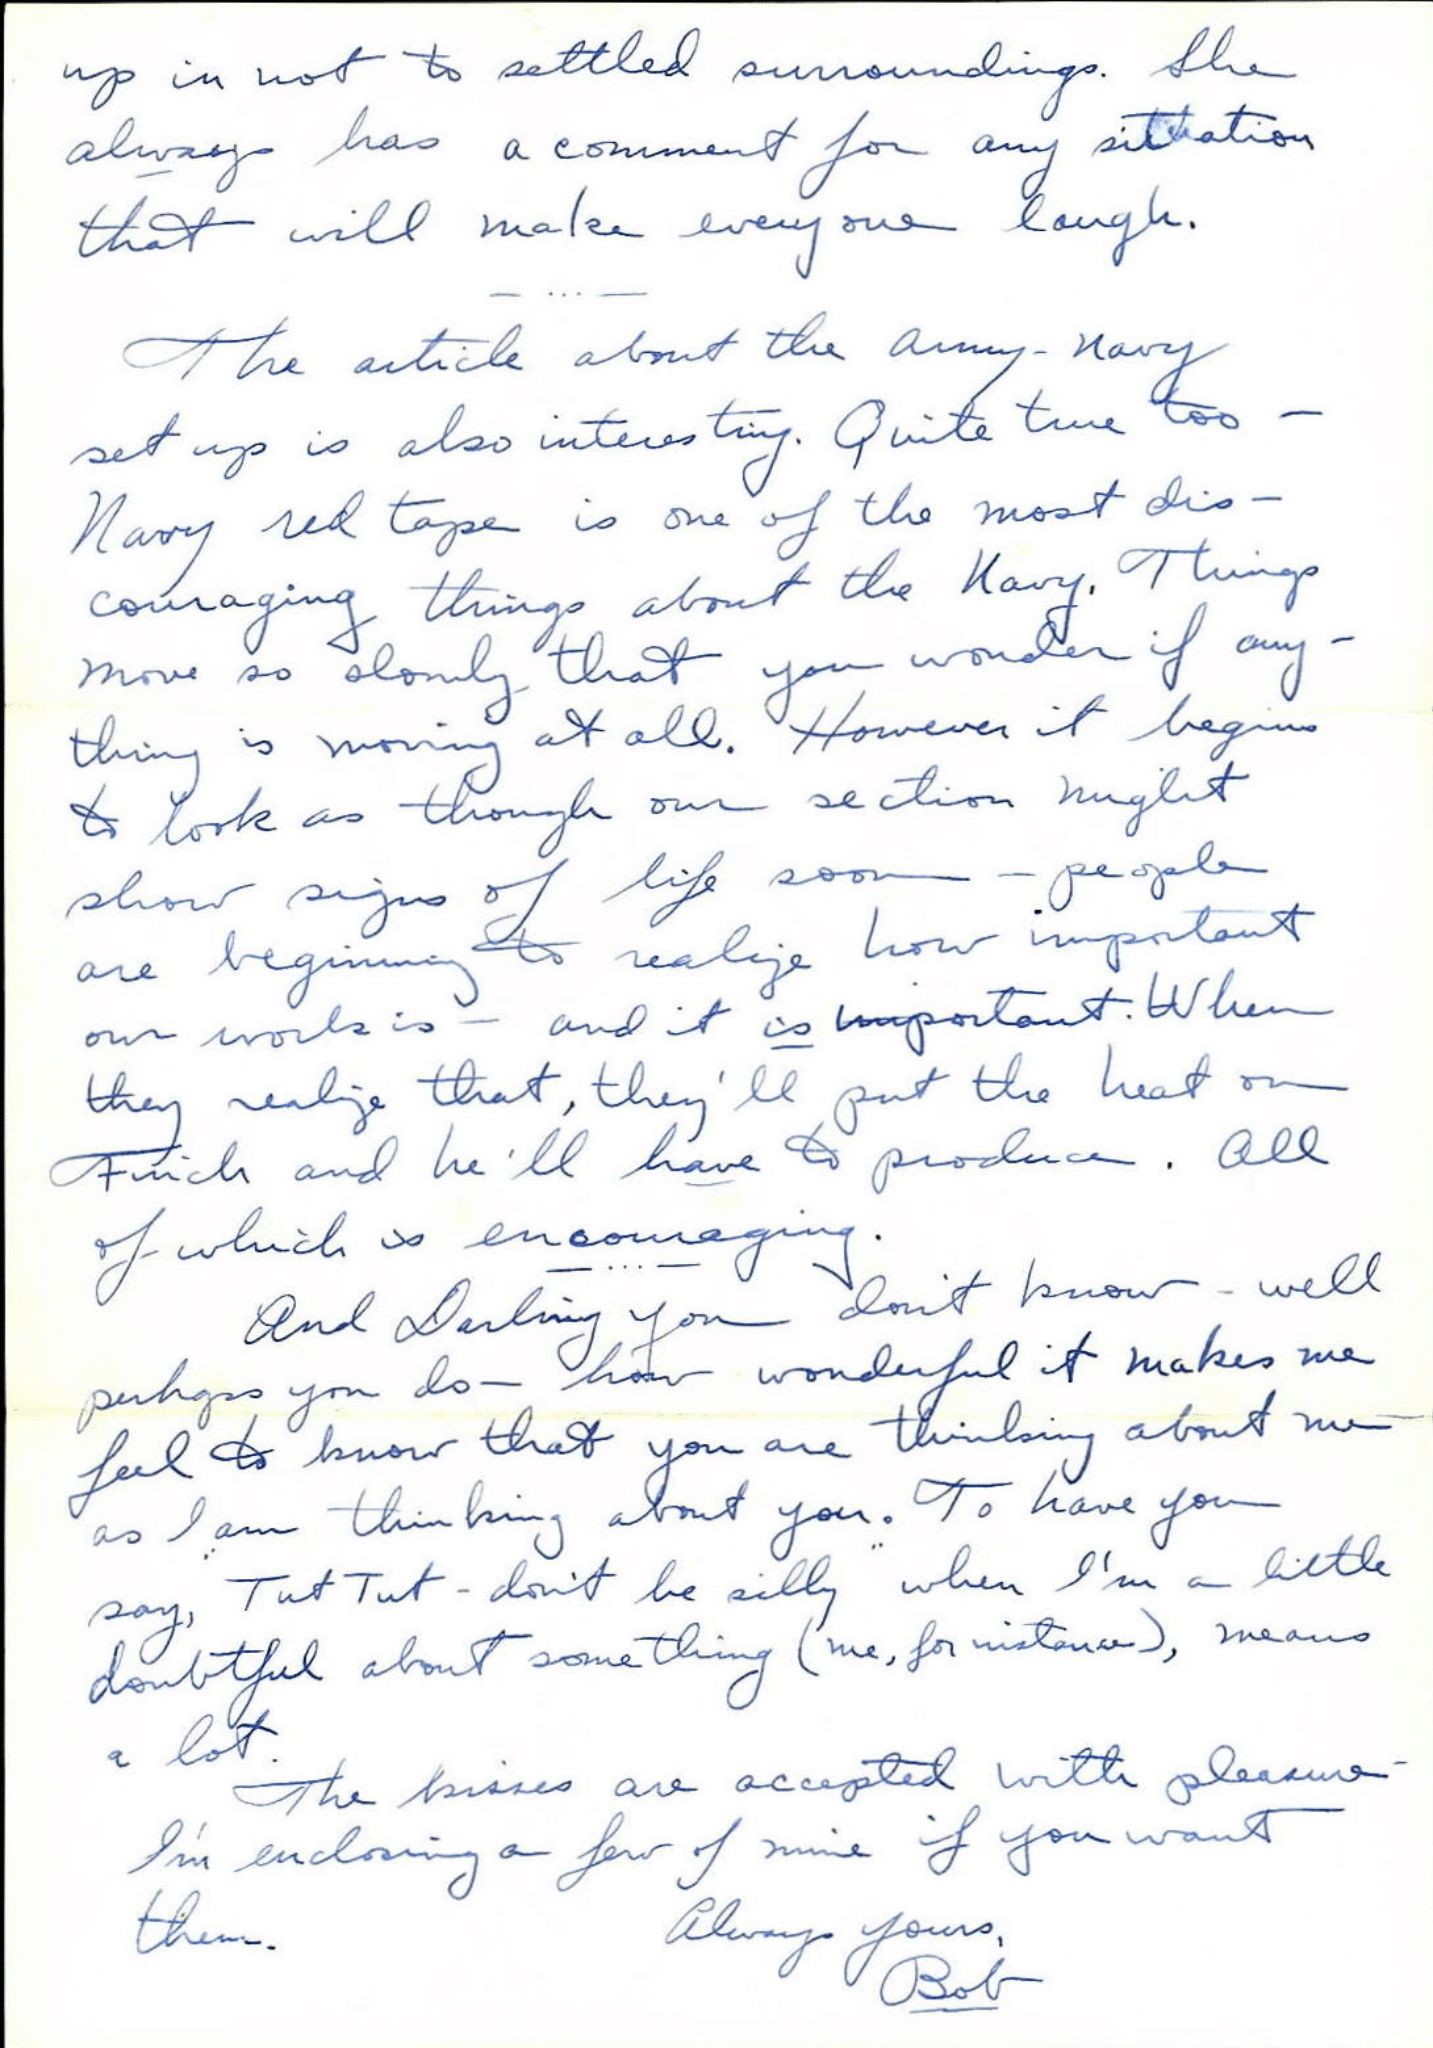 up in not to settled surroundings. She
always has a comment for any situation
that will make everyone laugh.
— ... —
The article about the Army-Navy
set up is also interesting. Quite true too —
Navy red tape is one of the most dis-
couraging things about the Navy. Things
move so slowly that you wonder if any-
thing is moving at all. However it begins
to look as though our section might
show signs of life soon — people
are beginning to realize how important
our work is — and it is important. When
they realize that, they'll put the heat on
Finch and he'll have to produce. All
of which is encouraging.
— ... —
And Darling you don't know - well
perhaps you do — how wonderful it makes me
feel to know that you are thinking about me —
as I am thinking about you. To have you
say, "Tut Tut - don't be silly" when I'm a little
doubtful about something (me, for instance), means
a lot.
The kisses are accepted with pleasure -
I'm enclosing a few of mine if you want
them.
Always yours,
Bob